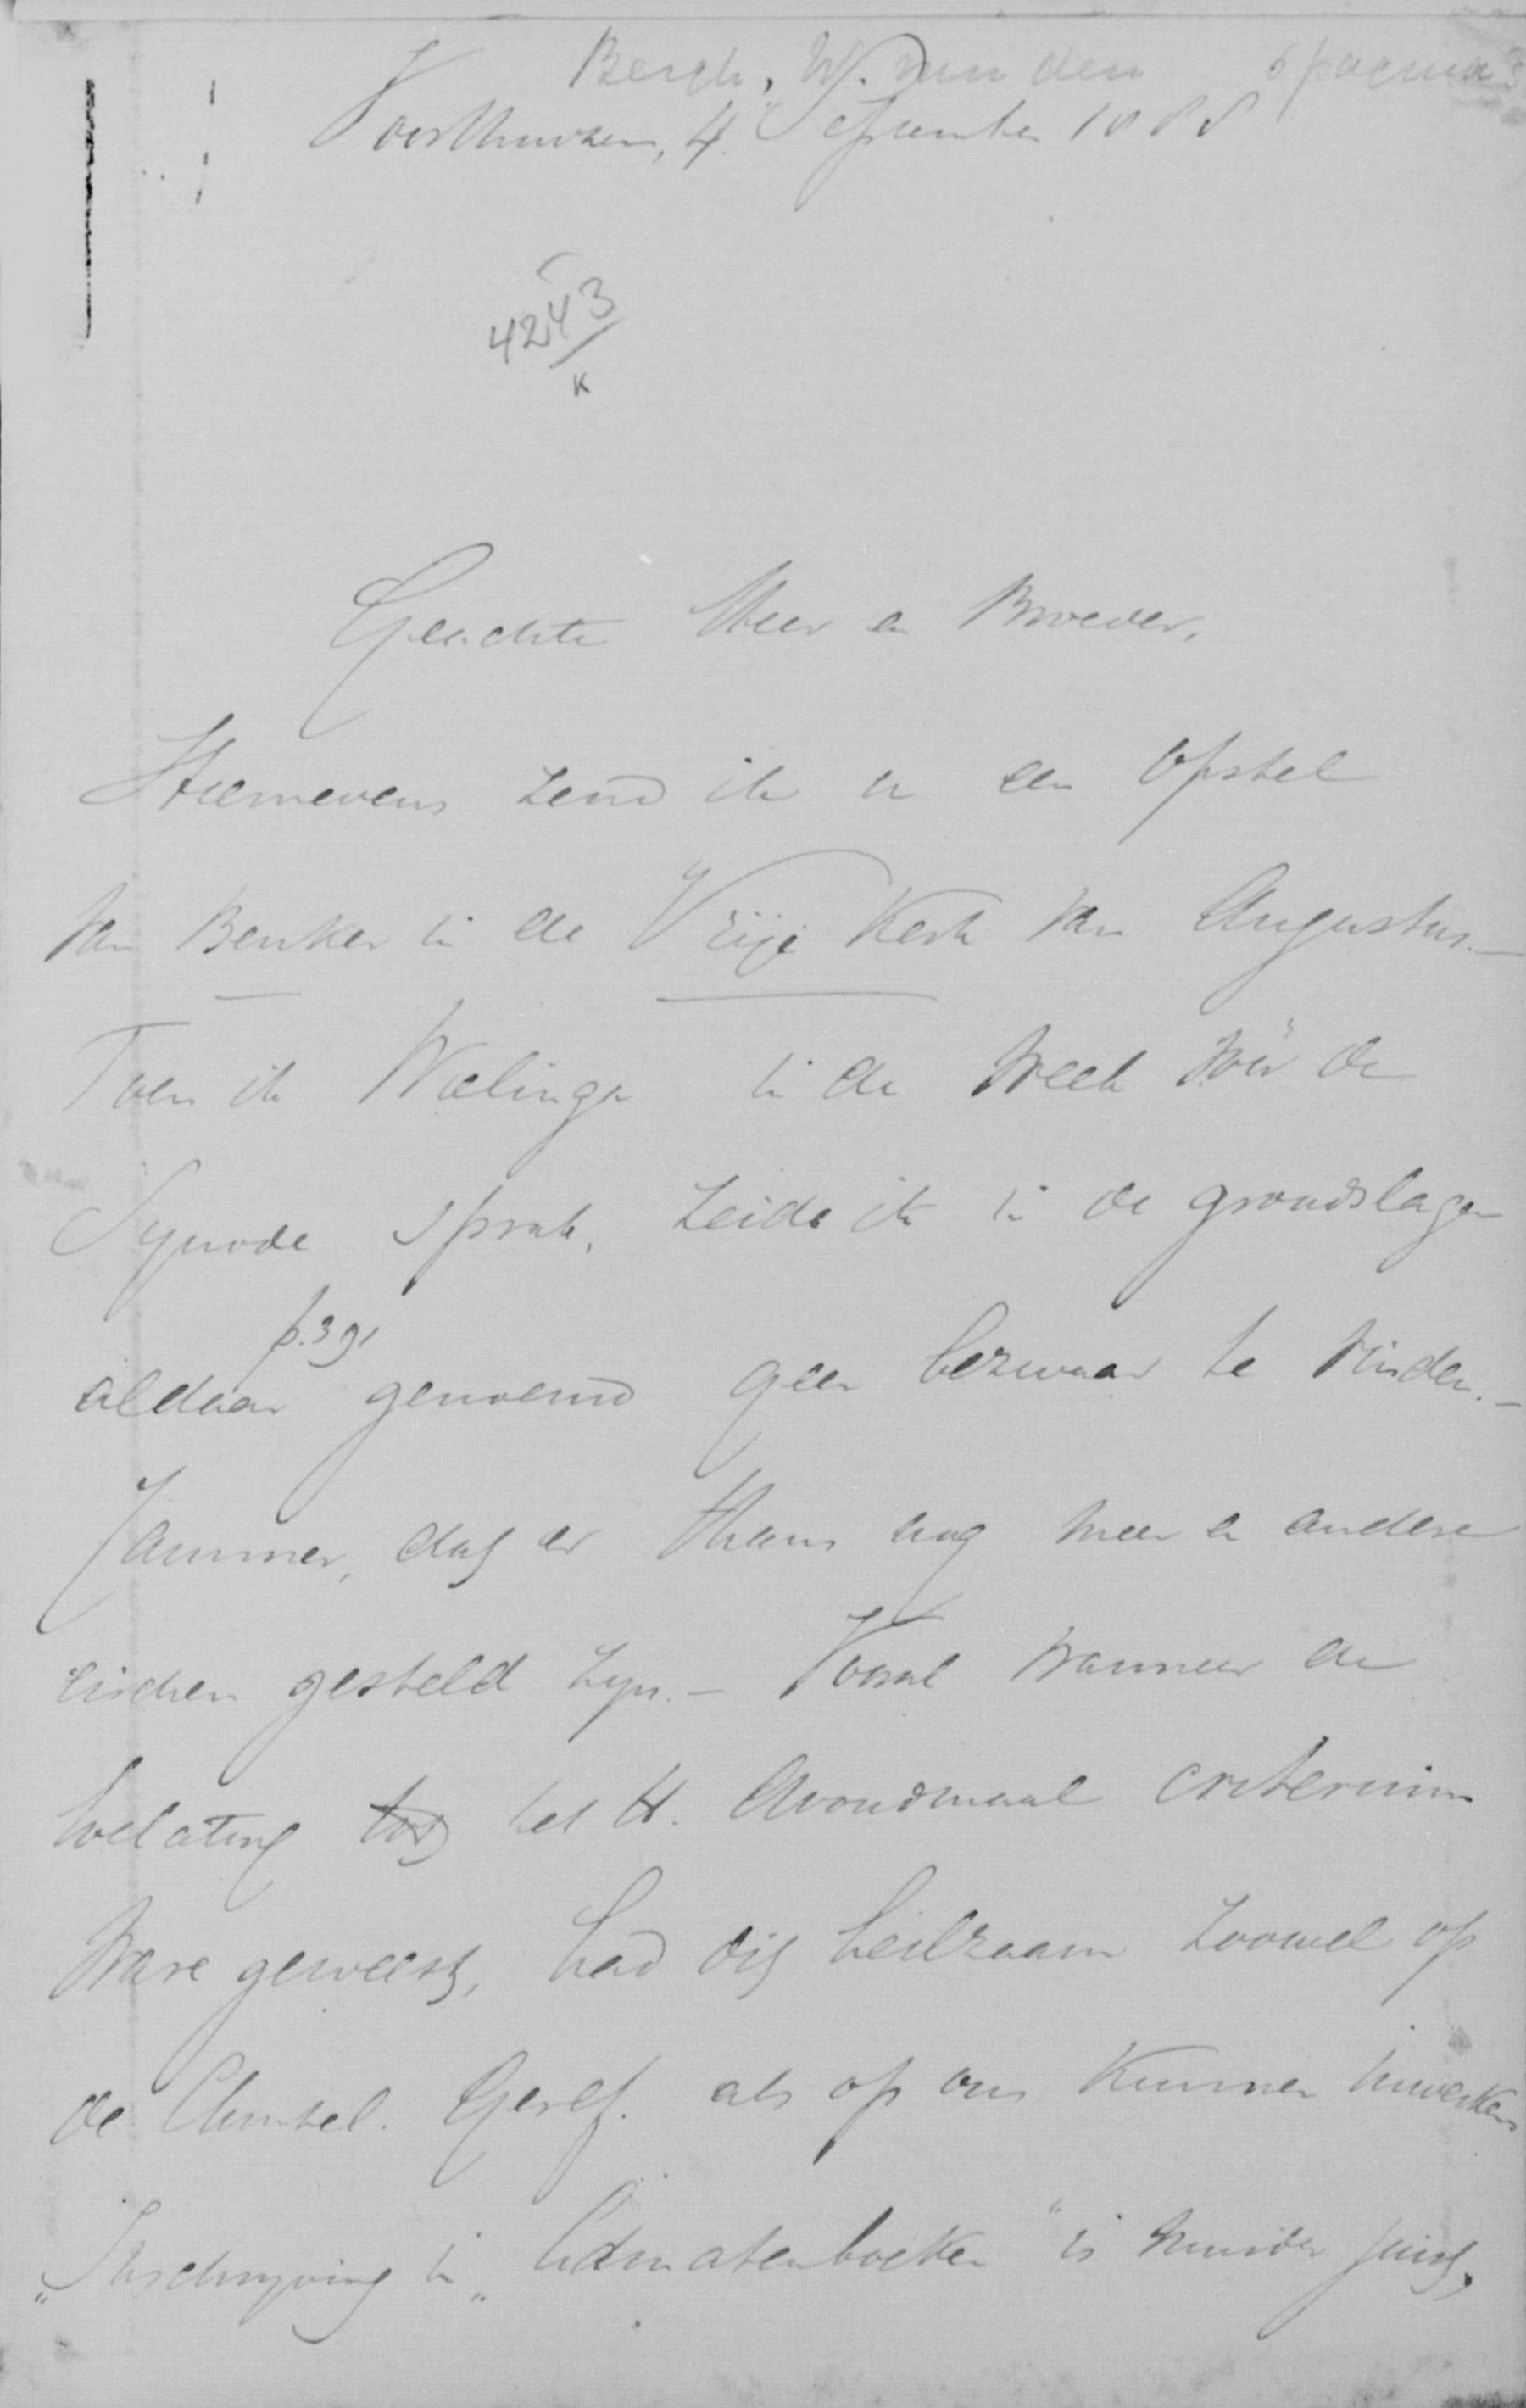 Bergh, W. van den 6 pagina's
Voorthuizen, 4 September 1888
4243
K
Geachte Heer en Broeder,
Hiernevens zend ik u een opstel
van Beuker in de Vrije Kerk van Augustus. —
Toen ik Wielinga in de week vóór de
Synode sprak, zeide ik in de grondslagen
p. 391
aldaar genoemd geen bezwaar te vinden. —
Jammer, dat er thans nog meer en andere
eischen gesteld zijn. — Vooral wanneer de
toelating tot het H. Avondmaal criterium
ware geweest, had dit heilzaam zoowel op
de Christel. Geref. als op ons kunnen inwerken
„Inschrijving in „lidmatenboeken" is minder juist,